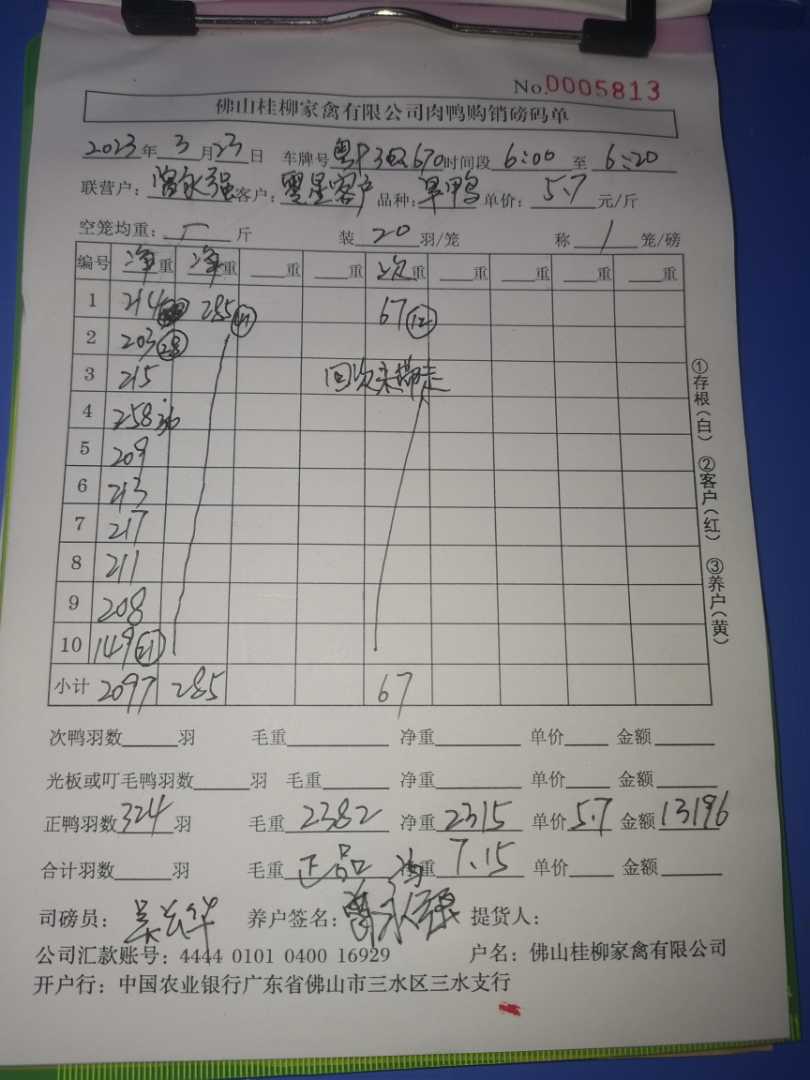 No.0005813
佛山桂柳家禽有限公司肉鸭购销磅码单
2023年3月23日 车牌号 670时间段 6:00 至 6:20
联营户: 永强 客户: 粤星客户 品种: 旱鸭 单价: 5.7 元/斤
空笼均重: 斤 装 20 羽/笼 称 1 笼/磅
编号 净重 净重 重 重 次重 重 重 重 重
1 214 285 (41) 67 (12)
2 203 (28)
3 215 回次未带走
4 258
5 209
6 213
7 217
8 211
9 208
10 149 (21)
小计 2097 285 67
①存根(白) ②客户(红) ③养户(黄)
次鸭羽数 羽 毛重 净重 单价 金额
光板或叮毛鸭羽数 羽 毛重 净重 单价 金额
正鸭羽数 324 羽 毛重 2382 净重 2315 单价 5.7 金额 13196
合计羽数 羽 毛重 正品 净重 7.15 单价 金额
司磅员: 养户签名: 永强 提货人:
公司汇款账号: 4444 0101 0400 16929 户名: 佛山桂柳家禽有限公司
开户行: 中国农业银行广东省佛山市三水区三水支行